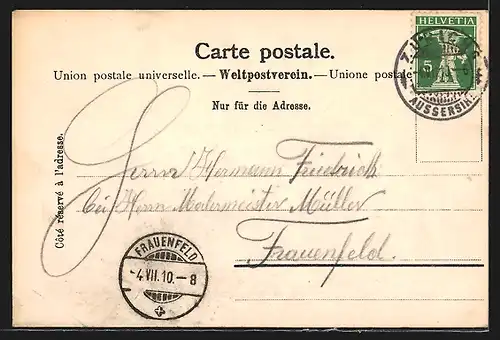 Carte postale.
HELVETIA
5
AUSSERSIHL
Union postale universelle. — Weltpostverein. — Unione postale
Nur für die Adresse.
Côté réservé à l'adresse.
Herrn Hermann Friedrich
bei Herrn Malermeister Müller
Frauenfeld.
FRAUENFELD
-4.VII.10.-8